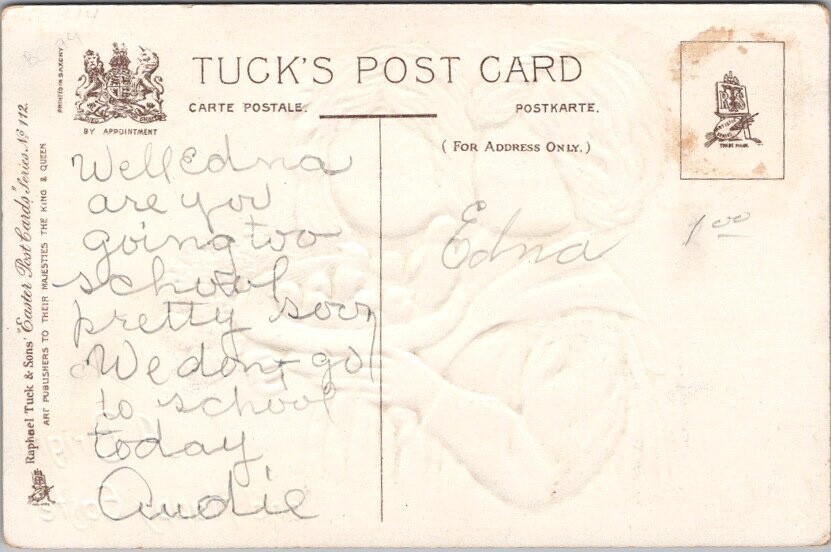 TUCK'S POST CARD
CARTE POSTALE. POSTKARTE.
(FOR ADDRESS ONLY.)
PRINTED IN SAXONY
BY APPOINTMENT
Raphael Tuck & Sons' "Easter Post Cards," Series No 112.
ART PUBLISHERS TO THEIR MAJESTIES THE KING & QUEEN
TRADE MARK.
Well Edna
are you
going too
school
pretty soon
We dont go
to school
today
Audie
Edna
1 00